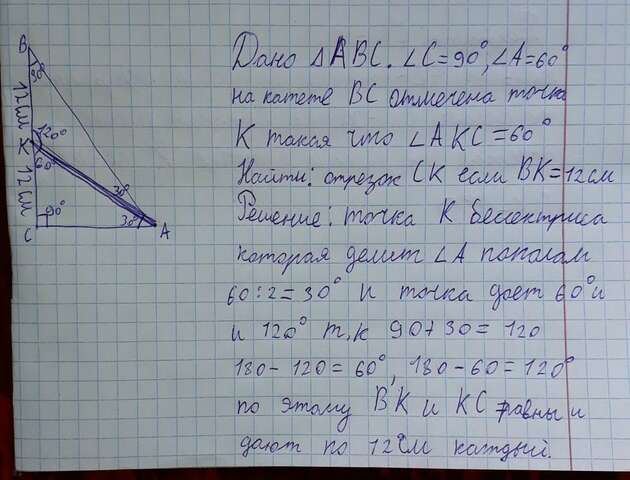 Дано △ABC. ∠C=90°, ∠A=60°
на катете BC отмечена точка
K такая что ∠AKC=60°
Найти: отрезок CK если BK=12см
Решение: точка K бессектриса
которая делит ∠A пополам
60:2=30° и точка дает 60° и
и 120° т.к 90+30=120
180-120=60°, 180-60=120°
по этому BK и KC равны и
дают по 12см каждый.
B
30°
12см
120°
K
60°
12см
30°
30°
90°
C
A